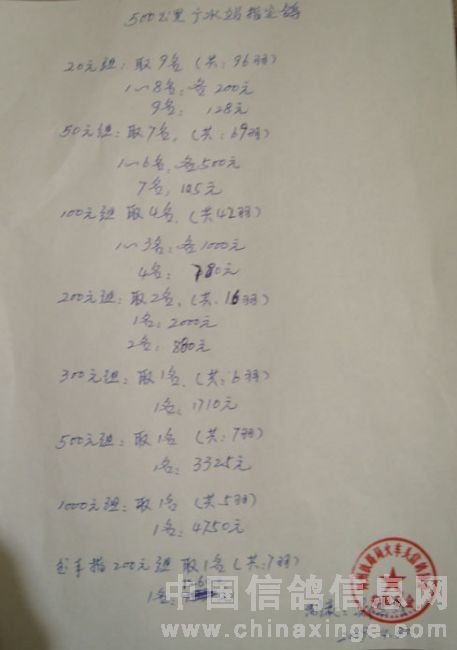 500公里广水站指定鸽
20元组: 取9名 (共: 96羽)
1~8名: 各200元
9名: 128元
50元组: 取7名, (共: 69羽)
1~6名, 各500元
7名, 105元
100元组 取4名, (共42羽)
1~3名: 各1000元
4名: 780元
200元组: 取2名, (共: 16羽)
1名: 2000元
2名: 880元
300元组: 取1名, (共: 6羽)
1名: 1710元
500元组: 取1名 (共: 7羽)
1名: 3325元
1000元组: 取1名 (共5羽)
1名: 4750元
指200元组 取1名 (共: 7羽)
1名:
中国信鸽信息网
www.chinaxinge.com